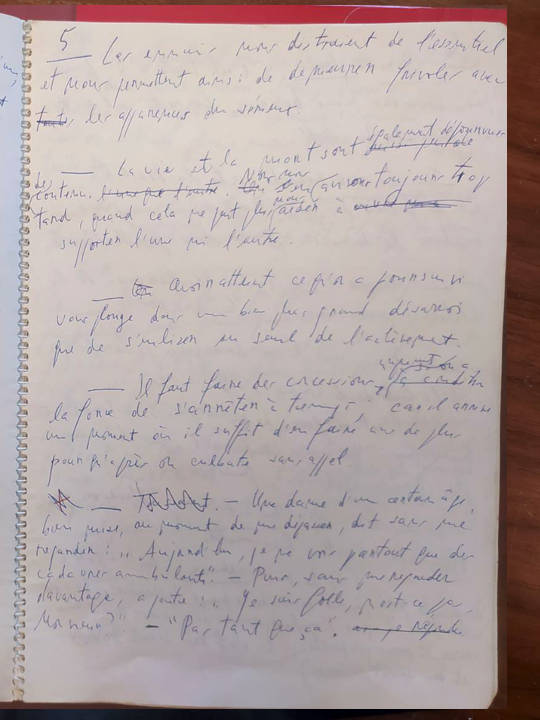 5 Les ennuis nous distraient de l'essentiel
et nous permettent ainsi de frivoler avec
toutes les apparences du sérieux.
— La vie et la mort sont également dépourvues
de contenu. l'une que l'autre. Nous nous en avisons toujours trop
tard, quand cela ne peut plus nous aider à
supporter l'une ni l'autre.
— avoir atteint ce qu'on a poursuivi
vous plonge dans un bien plus grand désarroi
que de s'enliser au seuil de l'achèvement.
— Il faut faire des concessions,
la force de s'arrêter à temps, car il arrive
un moment où il suffit d'en faire une de plus
pour qu'après on culbute sans appel
— Une dame d'un certain âge,
bien mise, au moment de me dépasser, dit sans me
regarder : „ Aujourd'hui, je ne vois partout que des
cadavres ambulants". — Puis, sans me regarder
davantage, ajoute : „ Je suis folle, n'est-ce pas,
Monsieur?" — "Pas tant que ça".